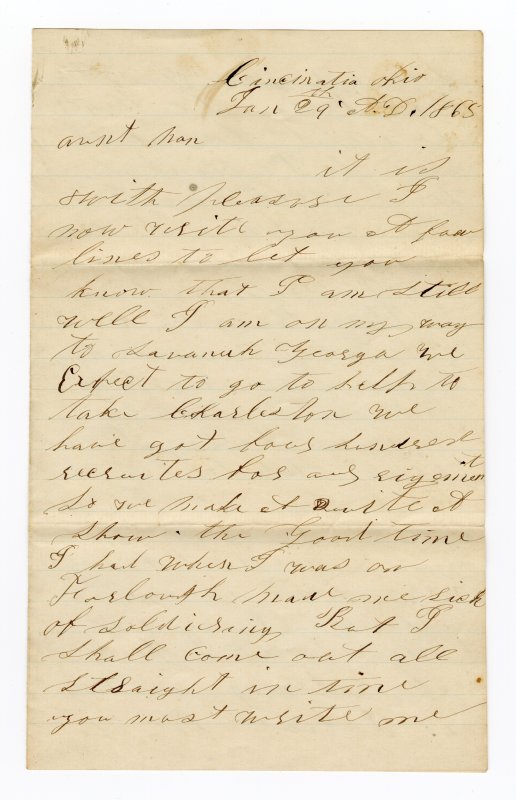 Cincinatia Ohio
Jan 29th A.D. 1865
aunt Nan
it is
with pleasure I
now write you A few
lines to let you
know that I am still
well I am on my way
to Savanuh Georga We
Expect to go to help to
take Charleston We
have got four hundred
recruites for our rigement
So we make A Quite A
show. the Good time
I had when I was on
Furlough made me sick
of soldiering But I
shall come out all
straight in time
you must write me